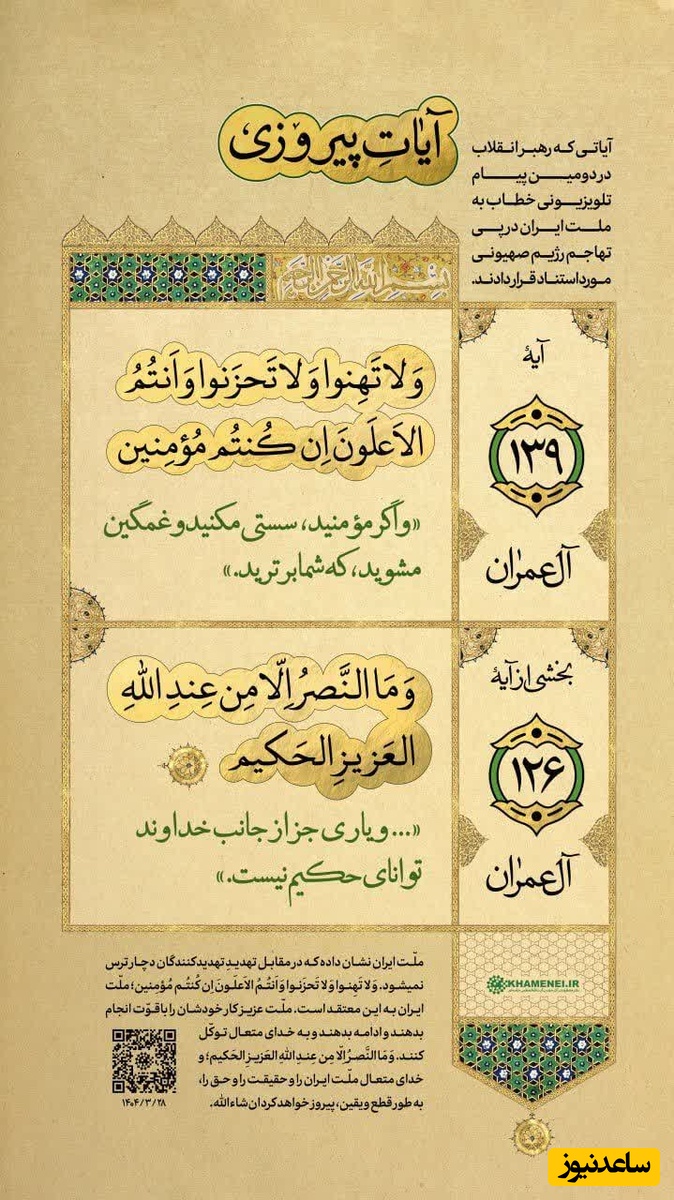 آیاتِ پیروزی
آیاتی که رهبر انقلاب
در دومین پیام
تلویزیونی خطاب به
ملت ایران در پی
تهاجم رژیم صهیونی
مورد استناد قرار دادند.
بِسْمِ اللهِ الرَّحْمٰنِ الرَّحِیمِ
آیهٔ
۱۳۹
آل‌عمران
وَلا تَهِنوا وَلا تَحزَنوا وَاَنتُمُ
الاَعلَونَ اِن کُنتُم مُؤمِنین
«و اگر مؤمنید، سستی مکنید و غمگین
مشوید، که شما برترید.»
بخشی از آیهٔ
۱۲۶
آل‌عمران
وَ مَا النَّصرُ اِلّا مِن عِندِ اللهِ
العَزیزِ الحَکیم
«... و یاری جز از جانب خداوند
توانای حکیم نیست.»
ملّت ایران نشان داده که در مقابل تهدیدِ تهدیدکنندگان دچار ترس
نمیشود. وَلا تَهِنوا وَلا تَحزَنوا وَاَنتُمُ الاَعلَونَ اِن کُنتُم مُؤمِنین؛ ملّت
ایران به این معتقد است. ملّت عزیز کار خودشان را با قوّت انجام
بدهند و ادامه بدهند و به خدای متعال توکّل
کنند. وَ مَا النَّصرُ اِلّا مِن عِندِ اللهِ العَزیزِ الحَکیم؛ و
خدای متعال ملّت ایران را و حقیقت را و حق را،
به طور قطع و یقین، پیروز خواهد کرد ان‌شاءالله.
۱۴۰۴/۳/۲۸
KHAMENEI.IR
ساعدنیوز